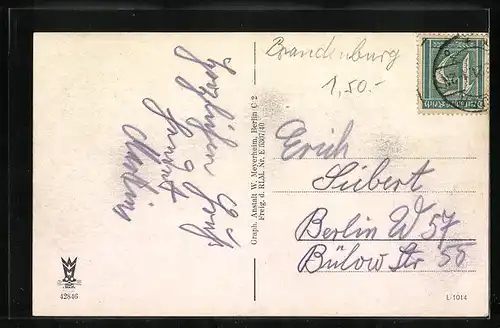 Brandenburg
1,50.-
Herzlichen Gruß
Erich
Siebert
Berlin W 57
Bülow Str 55
Graph. Anstalt W. Meyerheim, Berlin C 2
Freig. d. RLM. Nr. E 3307/40
42846
L 1014
Deutsches Reich